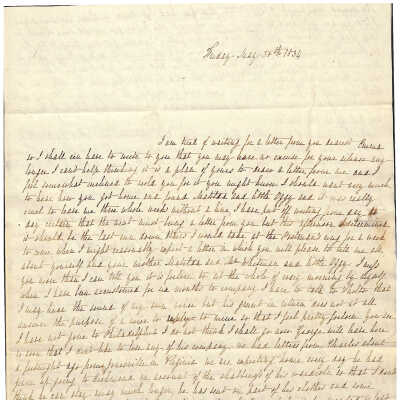 Friday May 30th 1834
I am tired of waiting for a letter from you dearest Emma
so I shall in have to write to you that you may have no excuse for your silence any
longer I can't help thinking it is a plan of yours to draw a letter from me and I
feel somewhat inclined to scold you for it you might know I should want very much
to hear how you got home and found Matilda and little Oggy and it was really
cruel to leave me three whole weeks without a line I have put off writing from day to
day certain that the next must bring a letter from you but this afternoon determined
it should be the last sun down till I would take for the
to me when I might reasonably expect a letter in which you will please to tell me all
about yourself and your mother Matilda and Mr and little Oggy I miss
you more than I can tell you it is forlorn to set the whole of every morning by myself
when I have been accustomed for six months to company I have to talk to Victor that
I may hear the sound of my own voice but his grunt in return does not at all
answer the purpose of a voice to reply to mine so that I feel pretty forlorn you see
I have not gone to Philadelphia I do not think I shall go now George will have been
so soon that I don't like to lose any of his company. we had letters from Charles about
a fortnight ago from in Virginia we are expecting home every day he had
given up going to on account of the of his wardrobe so that I don't
think he can stay away much longer, he has sent on part of his clothes and some